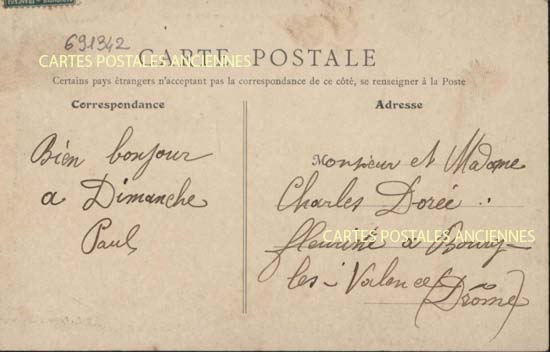 691342
CARTE POSTALE
CARTES POSTALES ANCIENNES
Certains pays étrangers n'acceptant pas la correspondance de ce côté, se renseigner à la Poste
Correspondance
Bien bonjour
a Dimanche
Paul
Adresse
Monsieur et Madame
Charles Dorée
fleuriste a Bourg-
CARTES POSTALES ANCIENNES
les-Valence
(Drôme)